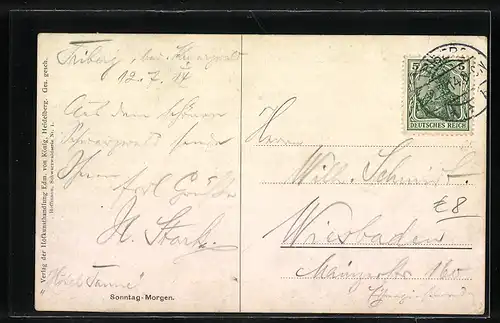 Triberg, bad. Schwarzwald
12.7.14
Aus dem schönen
Schwarzwald sende
Ihnen
H. Stark
"Hotel Tanne"
Sonntag-Morgen.
Verlag der Hofkunsthandlung Edm. von König, Heidelberg. Ges. gesch.
Hoffmann, Schwarzwaldserie Nr. 1.
5
DEUTSCHES REICH
Herrn
Wilh. Schmidt
€8
Wiesbaden
Mainzerstr. 160